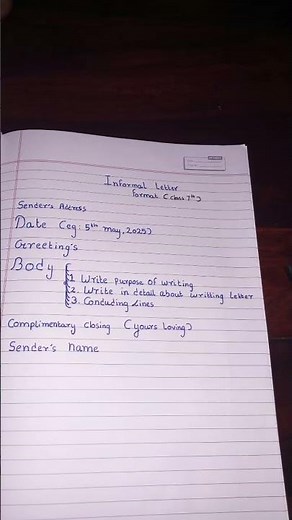 Informal Letter
format (class 7th)
Sender's Address
Date (eg: 5th may, 2025)
Greeting's
Body
1. Write purpose of writing
2. Write in detail about writting letter
3. Concluding Lines
Complimentary closing (yours Loving)
Sender's name